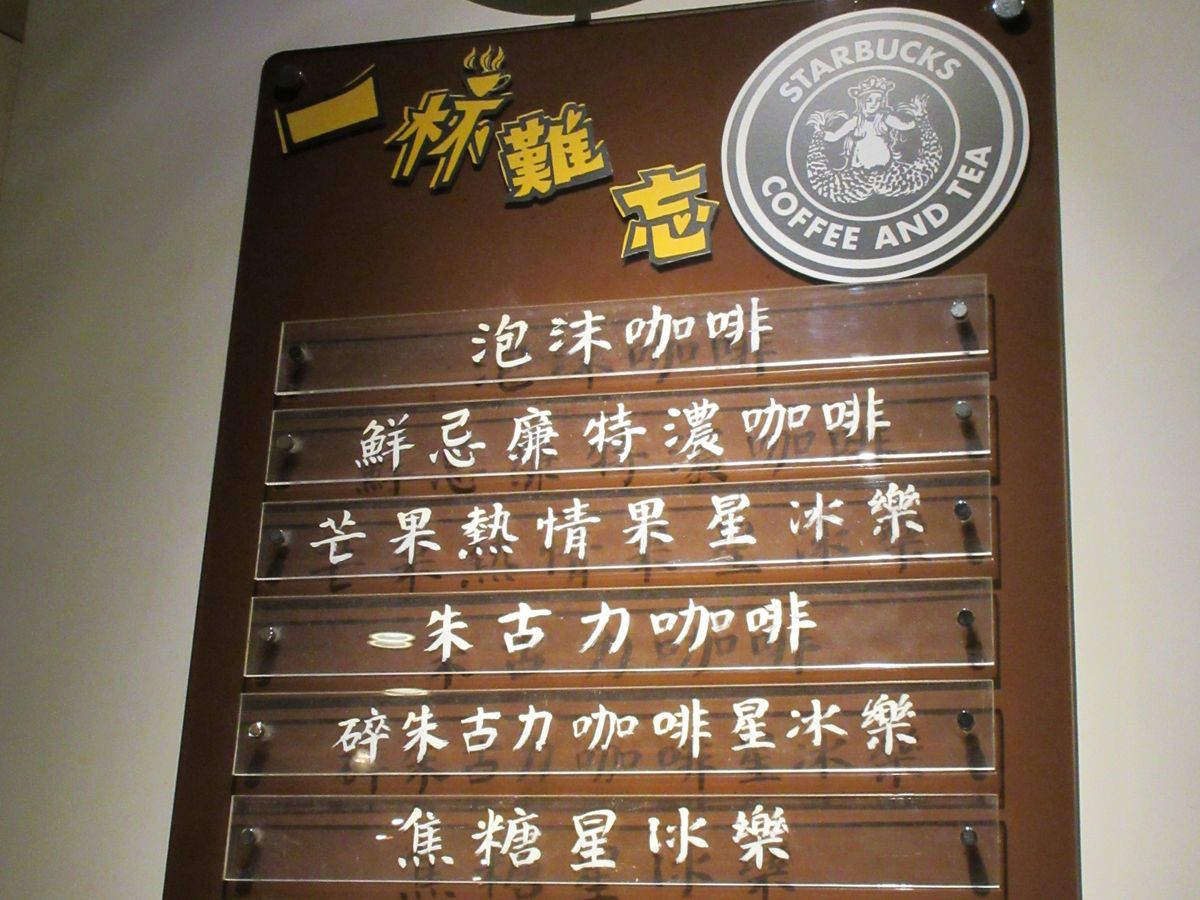 一杯難忘
STARBUCKS
COFFEE AND TEA
泡沫咖啡
鮮忌廉特濃咖啡
芒果熱情果星冰樂
朱古力咖啡
碎朱古力咖啡星冰樂
焦糖星冰樂